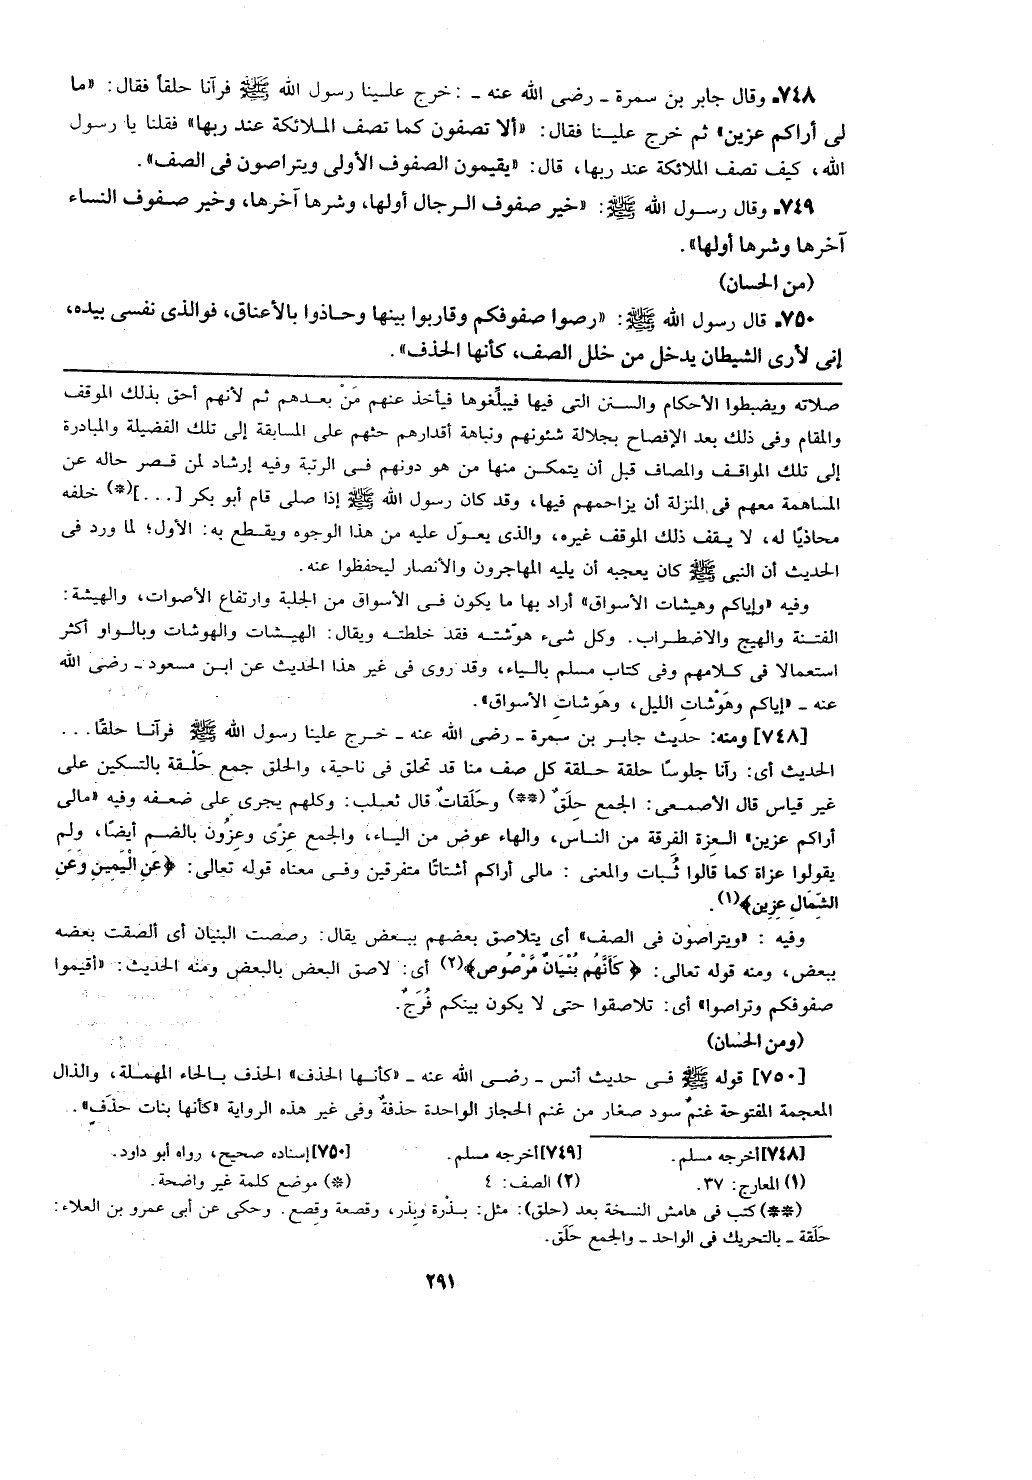 ٧٤٨ـ وقال جابر بن سمرة ـ رضى الله عنه ـ : خرج علـينا رسول الله ﷺ فرآنا حلقاً فقال: «ما
لى أراكم عزين» ثم خرج عليـنا فقال: «ألا تصفون كما تصف المـلائكة عند ربها» فقلنا يا رسول
الله، كيف تصف الملائكة عند ربها، قال: «يقيمون الصفوف الأولى ويتراصون فى الصف».
٧٤٩ـ وقال رسـول الله ﷺ: «خير صفوف الـرجال أولها، وشرها آخرها، وخير صـفوف النساء
آخرها وشرها أولها».
(من الحسان)
٧٥٠ـ قال رسول الله ﷺ: «رصوا صفوفكم وقاربوا بينها وحـاذوا بالأعناق، فوالذى نفسى بيده،
إنى لأرى الشيطان يدخل من خلل الصف، كأنها الحذف».
صلاته ويضبطوا الأحكام والسنن التى فيها فيبلِّغوها فيأخذ عنهم مَنْ بعـدهم ثم لأنهم أحق بذلك الموقف
والمقام وفى ذلك بعد الإفصاح بجلالة شئونهم ونباهة أقدارهم حثهم على المسابقة إلى تلك الفضيلة والمبادرة
إلى تلك المواقـف والمصاف قبل أن يتمكـن منها من هو دونهم فـى الرتبة وفيه إرشاد لمن قـصر حاله عن
المساهمة معهم فى المنزلة أن يزاحمهم فيها، وقد كان رسول الله ﷺ إذا صلى قام أبو بكر [...](*) خلفه
محاذيًا له، لا يـقف ذلك الموقف غيره، والذى يعـوّل عليه من هذا الوجوه ويقـطع به: الأول؛ لما ورد فى
الحديث أن النبى ﷺ كان يعجبه أن يليه المهاجرون والأنصار ليحفظوا عنه.
وفيه «وإياكم وهيشات الأسواق» أراد بها ما يكون فـى الأسواق من الجلبة وارتفاع الأصوات، والهيشة:
الفتـنة والهيج والاضطـراب. وكل شىء هوّشتـه فقد خلطتـه ويقال: الهيـشات والهوشات وبالـواو أكثر
استعمالا فى كـلامهم وفى كتاب مسلم بالـياء، وقد روى فى غير هذا الحديث عن ابـن مسعود ـ رضى الله
عنه ـ «إياكم وهَوْشاتِ الليل، وهَوشاتِ الأسواق».
[٧٤٨] ومنه: حديث جابـر بن سمرة ـ رضى الله عنه ـ خـرج علينا رسول الله ﷺ فرآنـا حلقًا...
الحديث أى: رآنا جلوسًا حلقة حـلقة كل صف منا قد تحلق فى ناحية، والحلق جمع حَلْـقة بالتسكين على
غير قياس قال الأصمـعى: الجمع حِلَقٌ (**) وحَلَقاتٌ قال ثعـلب: وكلهم يجرى على ضعـفه وفيه «مالى
أراكم عزين» العـزة الفرقة من النـاس، والهاء عوض من اليـاء، والجمع عِزًى وعِزُون بالضـم أيضًا، ولم
يقولوا عزاة كما قالوا ثُـبات والمعنى : مالى أراكم أشتاتًا متفرقين وفـى معناه قوله تعالى: ﴿عَنِ الْيَمِينِ وَعَنِ
الشِّمَالِ عِزِين﴾(١).
وفيه : «ويتراصون فى الصف» أى يتلاصق بعضهم ببـعض يقال: رصصت البنيان أى ألصقت بعضه
ببعض، ومنه قوله تعالى: ﴿ كَأَنَّهُم بُنْيَانٌ مَّرْصُوص﴾(٢) أى: لاصق البعض بالبعض ومنه الحديث: «أقيموا
صفوفكم وتراصوا» أى: تلاصقوا حتى لا يكون بينكم فُرَجٌ.
(ومن الحسان)
[٧٥٠] قوله ﷺ فـى حديث أنس ـ رضـى الله عنه ـ «كأنـها الحذف» الحذف بـالحاء المهمـلة، والذال
المعجمة المفتوحة غنمٌ سود صغار من غنم الحجاز الواحدة حذفةٌ وفى غير هذه الرواية «كأنها بنات حذَفٍ».
[٧٤٨]أخرجه مسلم. [٧٤٩]أخرجه مسلم. [٧٥٠]إسناده صحيح، رواه أبو داود.
(١) المعارج: ٣٧. (٢) الصف: ٤ (*) موضع كلمة غير واضحة.
(**) كتب فى هامش النسخة بعد (حلق): مثل: بـذْرة وبِذر، وقصعة وقصع. وحكى عن أبى عمرو بن العلاء:
حَلَقة ـ بالتحريك فى الواحد ـ والجمع حَلَق.
٢٩١